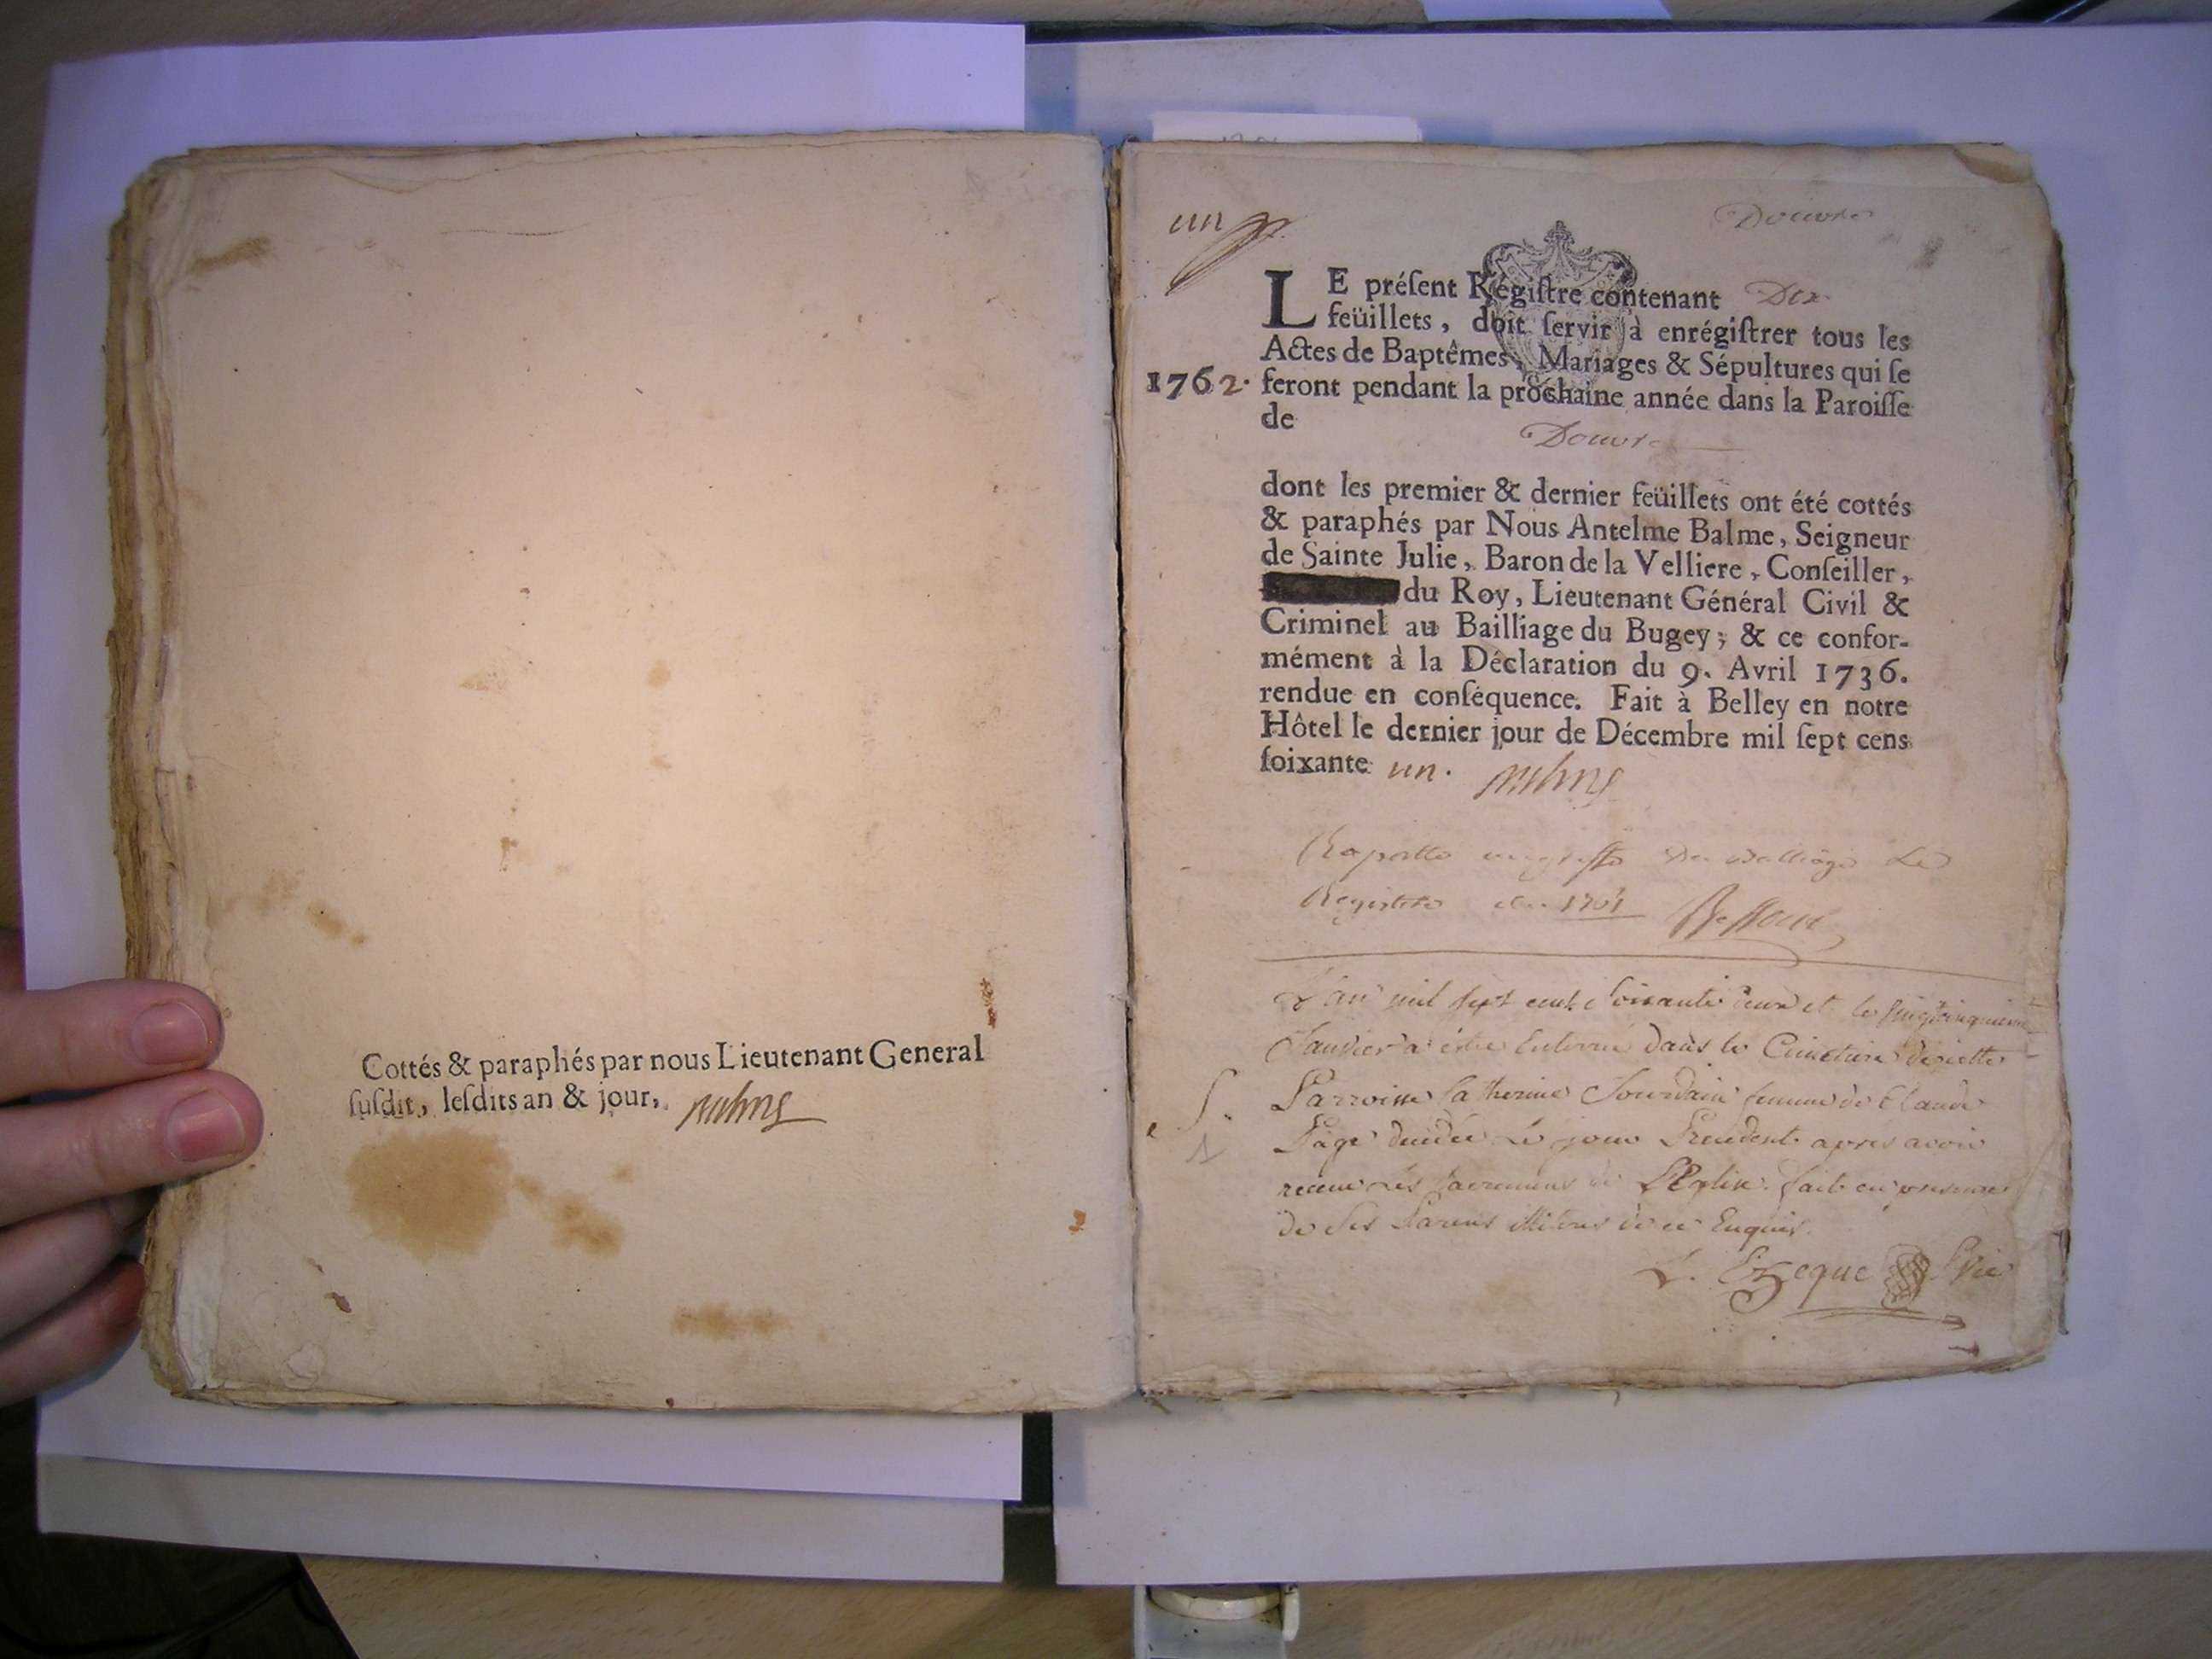 Cottés & paraphés par nous Lieutenant General
ſuſdit, leſdits an & jour,
un
Douvre
LE préſent Régiſtre contenant Dix
feüillets, doit ſervir à enrégiſtrer tous les
Actes de Baptêmes, Mariages & Sépultures qui ſe
1762. feront pendant la prochaine année dans la Paroiſſe
de
Douvre
dont les premier & dernier feüillets ont été cottés
& paraphés par Nous Antelme Balme, Seigneur
de Sainte Julie, Baron de la Velliere, Conſeiller,
du Roy, Lieutenant Général Civil &
Criminel au Bailliage du Bugey; & ce confor-
mément à la Déclaration du 9. Avril 1736.
rendue en conſéquence. Fait à Belley en notre
Hôtel le dernier jour de Décembre mil ſept cens
ſoixante un.
Raporté au greffe du Balliage Le
Registre de 1761
L'an mil sept cent soixante deux et le vingtcinquieme
Janvier a étée Enterrée dans le Cimetiere de cette
S. Parroisse Catherine Jourdain femme de Claude
1 Page decedée Le jour Precedent apres avoir
receue Les Sacremens de L'Eglise. fait en presence
de Ses Parens illiterés de ce Enquis.